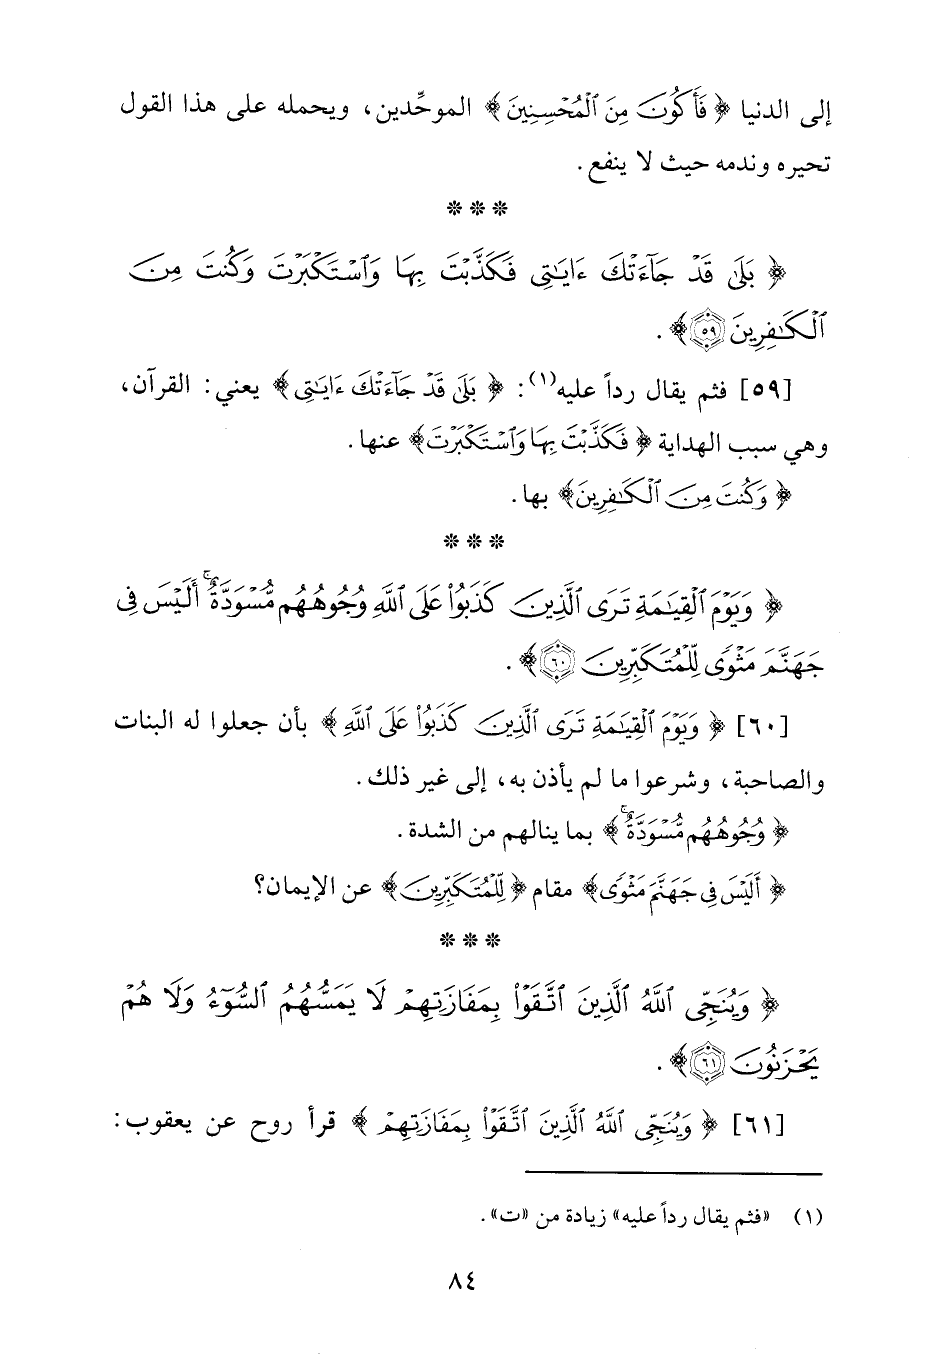 إلى الدنيا ﴿ فَأَكُونَ مِنَ ٱلْمُحْسِنِينَ ﴾ الموحِّدين، ويحمله على هذا القول
تحيره وندمه حيث لا ينفع.
* * *
﴿ بَلَىٰ قَدْ جَآءَتْكَ ءَايَٰتِى فَكَذَّبْتَ بِهَا وَٱسْتَكْبَرْتَ وَكُنتَ مِنَ
ٱلْكَٰفِرِينَ ٥٩ ﴾ .
[٥٩] فثم يقال رداً عليه(١): ﴿ بَلَىٰ قَدْ جَآءَتْكَ ءَايَٰتِى ﴾ يعني: القرآن،
وهي سبب الهداية ﴿ فَكَذَّبْتَ بِهَا وَٱسْتَكْبَرْتَ ﴾ عنها.
﴿ وَكُنتَ مِنَ ٱلْكَٰفِرِينَ ﴾ بها.
* * *
﴿ وَيَوْمَ ٱلْقِيَٰمَةِ تَرَى ٱلَّذِينَ كَذَبُوا۟ عَلَى ٱللَّهِ وُجُوهُهُم مُّسْوَدَّةٌ ۚ أَلَيْسَ فِى
جَهَنَّمَ مَثْوًى لِّلْمُتَكَبِّرِينَ ٦٠ ﴾ .
[٦٠] ﴿ وَيَوْمَ ٱلْقِيَٰمَةِ تَرَى ٱلَّذِينَ كَذَبُوا۟ عَلَى ٱللَّهِ ﴾ بأن جعلوا له البنات
والصاحبة، وشرعوا ما لم يأذن به، إلى غير ذلك.
﴿ وُجُوهُهُم مُّسْوَدَّةٌ ۚ ﴾ بما ينالهم من الشدة.
﴿ أَلَيْسَ فِى جَهَنَّمَ مَثْوًى ﴾ مقام ﴿ لِّلْمُتَكَبِّرِينَ ﴾ عن الإيمان؟
* * *
﴿ وَيُنَجِّى ٱللَّهُ ٱلَّذِينَ ٱتَّقَوْا۟ بِمَفَازَتِهِمْ لَا يَمَسُّهُمُ ٱلسُّوٓءُ وَلَا هُمْ
يَحْزَنُونَ ٦١ ﴾ .
[٦١] ﴿ وَيُنَجِّى ٱللَّهُ ٱلَّذِينَ ٱتَّقَوْا۟ بِمَفَازَتِهِمْ ﴾ قرأ روح عن يعقوب:
(١) «فثم يقال رداً عليه» زيادة من «ت».
٨٤